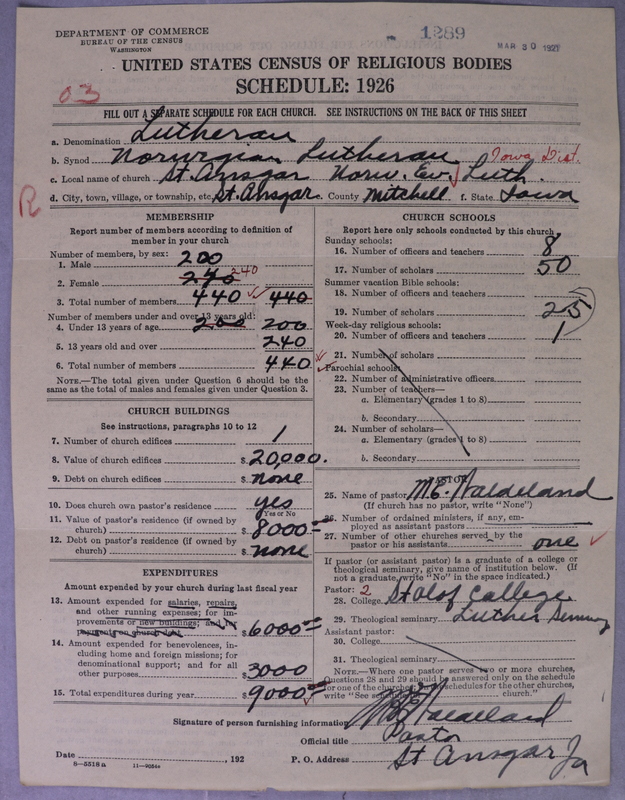 DEPARTMENT OF COMMERCE
BUREAU OF THE CENSUS
WASHINGTON
1289
MAR 30 1927
UNITED STATES CENSUS OF RELIGIOUS BODIES
SCHEDULE: 1926
03
FILL OUT A SEPARATE SCHEDULE FOR EACH CHURCH. SEE INSTRUCTIONS ON THE BACK OF THIS SHEET
a. Denomination Lutheran
b. Synod Norwegian Lutheran Iowa Dist.
c. Local name of church St. Ansgar Norw. Ev. Luth.
R
d. City, town, village, or township, etc. St. Ansgar e. County Mitchell f. State Iowa
MEMBERSHIP
Report number of members according to definition of
member in your church
Number of members, by sex:
1. Male 200
2. Female 240 240
3. Total number of members 440 440
Number of members under and over 13 years old:
4. Under 13 years of age 200 200
5. 13 years old and over 240
6. Total number of members 440
NOTE.—The total given under Question 6 should be the
same as the total of males and females given under Question 3.
CHURCH BUILDINGS
See instructions, paragraphs 10 to 12
7. Number of church edifices 1
8. Value of church edifices $20,000.
9. Debt on church edifices $ none
10. Does church own pastor's residence yes
Yes or No
11. Value of pastor's residence (if owned by
church) $8000
12. Debt on pastor's residence (if owned by
church) $ none
EXPENDITURES
Amount expended by your church during last fiscal year
13. Amount expended for salaries, repairs,
and other running expenses; for im-
provements or new buildings; and for
payments on church debt $6000
14. Amount expended for benevolences, in-
cluding home and foreign missions; for
denominational support; and for all
other purposes $3000
15. Total expenditures during year $9000
CHURCH SCHOOLS
Report here only schools conducted by this church
Sunday schools:
16. Number of officers and teachers 8
17. Number of scholars 50
Summer vacation Bible schools:
18. Number of officers and teachers
19. Number of scholars 25
Week-day religious schools:
20. Number of officers and teachers 1
21. Number of scholars
Parochial schools:
22. Number of administrative officers
23. Number of teachers—
a. Elementary (grades 1 to 8)
b. Secondary
24. Number of scholars—
a. Elementary (grades 1 to 8)
b. Secondary
PASTOR
25. Name of pastor M.E. Waldeland
(If church has no pastor, write "None")
26. Number of ordained ministers, if any, em-
ployed as assistant pastors
27. Number of other churches served by the
pastor or his assistants one
If pastor (or assistant pastor) is a graduate of a college or
theological seminary, give name of institution below. (If
not a graduate, write "No" in the space indicated.)
Pastor: 2
28. College St Olof College
29. Theological seminary Luther Seminary
Assistant pastor:
30. College
31. Theological seminary
NOTE.—Where one pastor serves two or more churches,
Questions 28 and 29 should be answered only on the schedule
for one of the churches; on schedules for the other churches,
write "See schedule for church."
Signature of person furnishing information M.E. Waldeland
Official title Pastor
Date , 192 P. O. Address St Ansgar Ia
8—5518a 11—9054